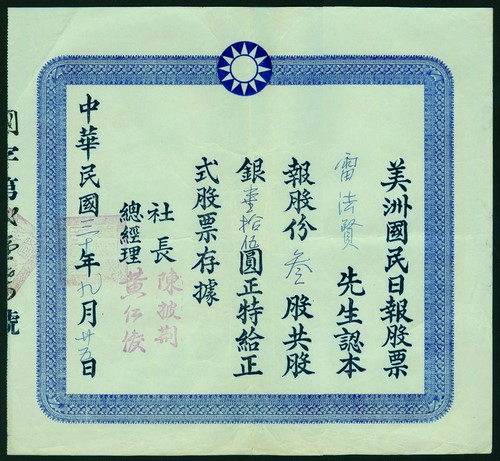 美洲國民日報股票
雷法賢先生認本
報股份叁股共股
銀壹拾伍圓正特給正
式股票存據
社長陳披荆
總經理黃仁俊
中華民國三十年九月廿五日
號